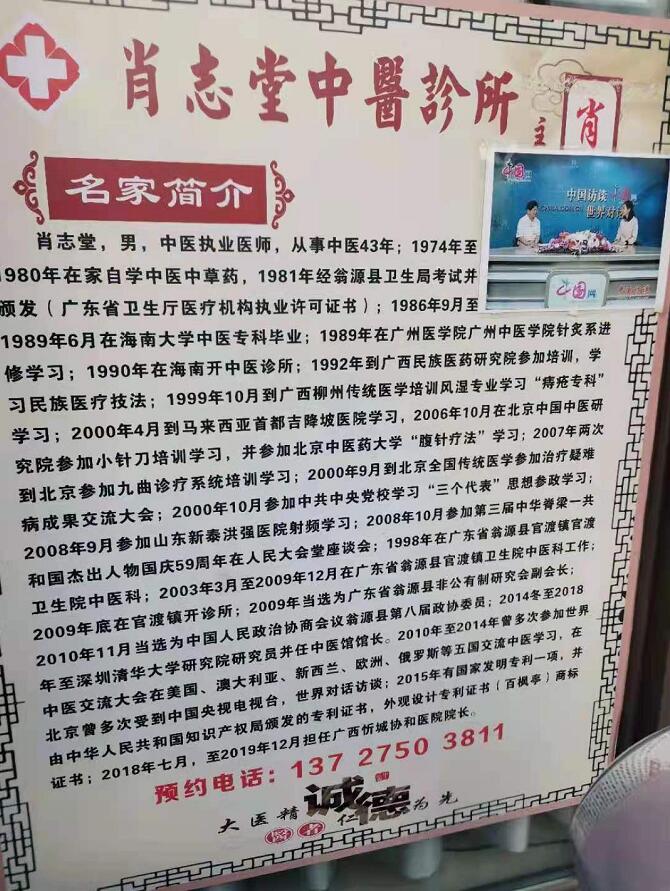 肖志堂中醫診所
主
肖
名家简介
中国访谈 中国网
CHINA.COM.CN
世界对话
中国网
肖志堂，男，中医执业医师，从事中医43年；1974年至
1980年在家自学中医中草药，1981年经翁源县卫生局考试并
颁发（广东省卫生厅医疗机构执业许可证书）；1986年9月至
1989年6月在海南大学中医专科毕业；1989年在广州医学院广州中医学院针炙系进
修学习；1990年在海南开中医诊所；1992年到广西民族医药研究院参加培训，学
习民族医疗技法；1999年10月到广西柳州传统医学培训风湿专业学习“痔疮专科”
学习；2000年4月到马来西亚首都吉隆坡医院学习，2006年10月在北京中国中医研
究院参加小针刀培训学习，并参加北京中医药大学“腹针疗法”学习；2007年两次
到北京参加九曲诊疗系统培训学习；2000年9月到北京全国传统医学参加治疗疑难
病成果交流大会；2000年10月参加中共中央党校学习“三个代表”思想参政学习；
2008年9月参加山东新泰洪强医院射频学习；2008年10月参加第三届中华脊梁一共
和国杰出人物国庆59周年在人民大会堂座谈会；1998年在广东省翁源县官渡镇官渡
卫生院中医科；2003年3月至2009年12月在广东省翁源县官渡镇卫生院中医科工作；
2009年底在官渡镇开诊所；2009年当选为广东省翁源县非公有制研究会副会长；
2010年11月当选为中国人民政治协商会议翁源县第八届政协委员；2014冬至2018
年至深圳清华大学研究院研究员并任中医馆馆长。2010年至2014年曾多次参加世界
中医交流大会在美国、澳大利亚、新西兰、欧洲、俄罗斯等五国交流中医学习，在
北京曾多次受到中国央视电视台，世界对话访谈；2015年有国家发明专利一项，并
由中华人民共和国知识产权局颁发的专利证书，外观设计专利证书（百枫亭）商标
证书；2018年七月，至2019年12月担任广西忻城协和医院院长。
预约电话：137 2750 3811
大医精诚
医者仁德为先